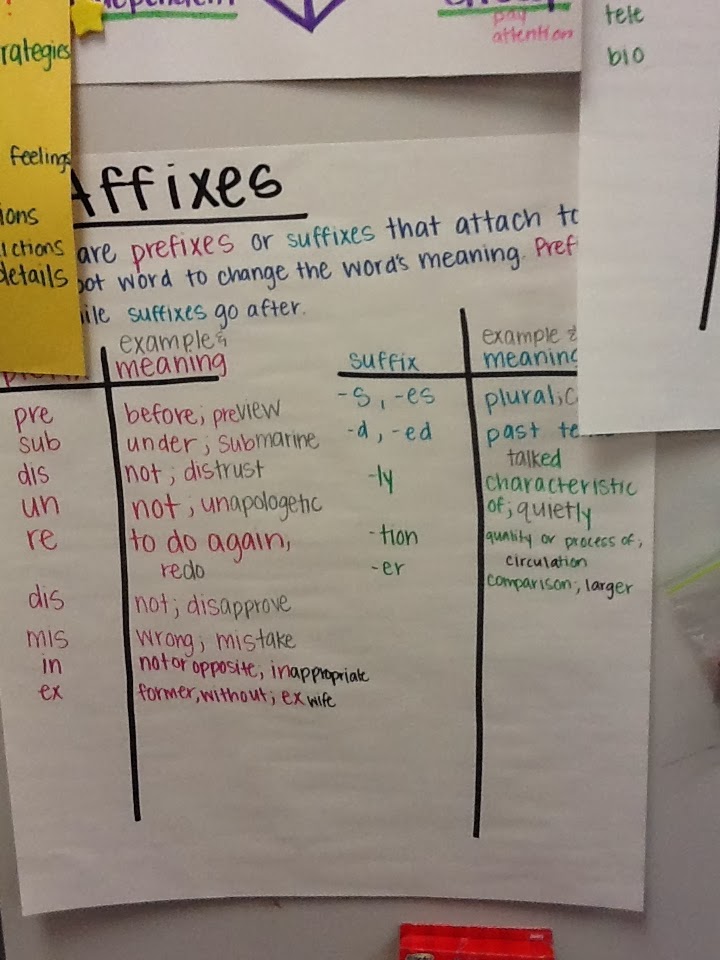 pay
attention
tele
bio
rategies
feelings
ions
ictions
details
Affixes
are prefixes or suffixes that attach to
oot word to change the word's meaning. Pref
ile suffixes go after.
example &
meaning
pre before; preview
sub under; submarine
dis not; distrust
un not; unapologetic
re to do again,
redo
dis not; disapprove
mis wrong; mistake
in not or opposite; inappropriate
ex former, without; ex wife
suffix
example &
meaning
-s, -es plural; c
-d, -ed past te
talked
-ly characteristic
of; quietly
-tion quality or process of;
circulation
-er comparison; larger